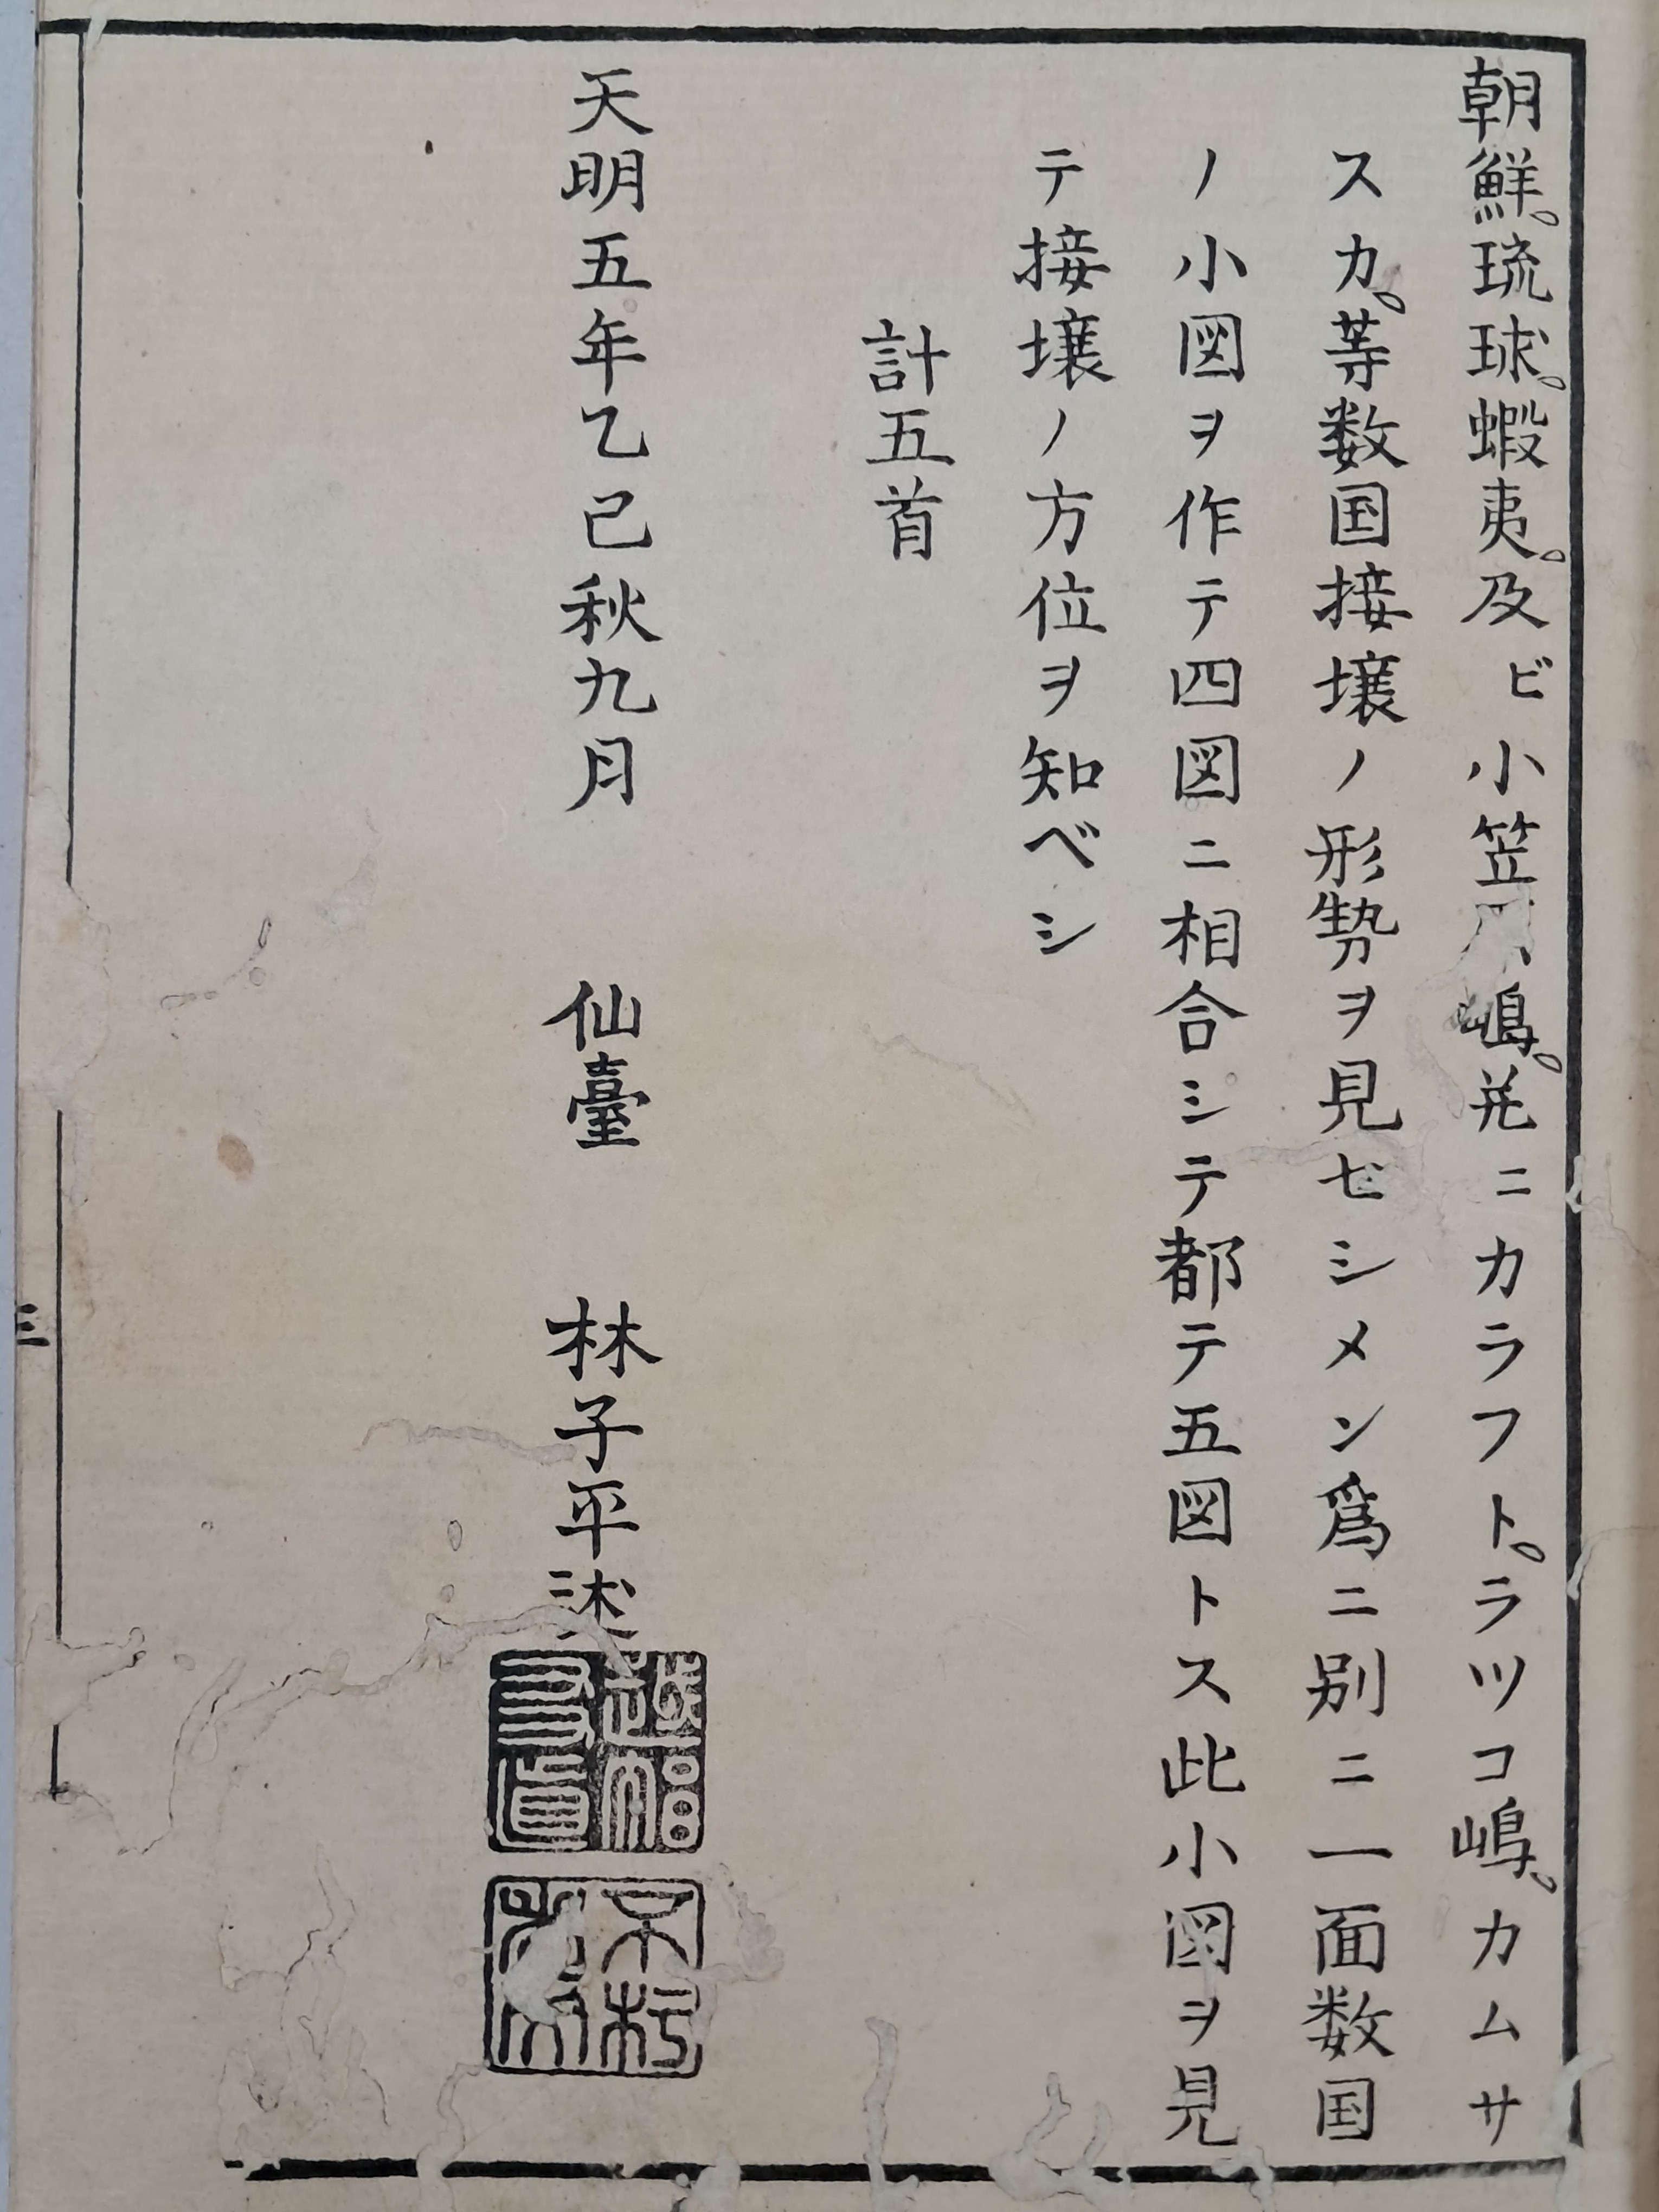 朝鮮。琉球。蝦夷。及ビ小笠嶋。并ニカラフト。ラツコ嶋。カムサ
スカ。等数国接壌ノ形勢ヲ見セシメン為ニ別ニ一面数国
ノ小図ヲ作テ四図ニ相合シテ都テ五図トス此小図ヲ見
テ接壌ノ方位ヲ知ベシ
計五首
天明五年乙巳秋九月 仙臺 林子平述
三